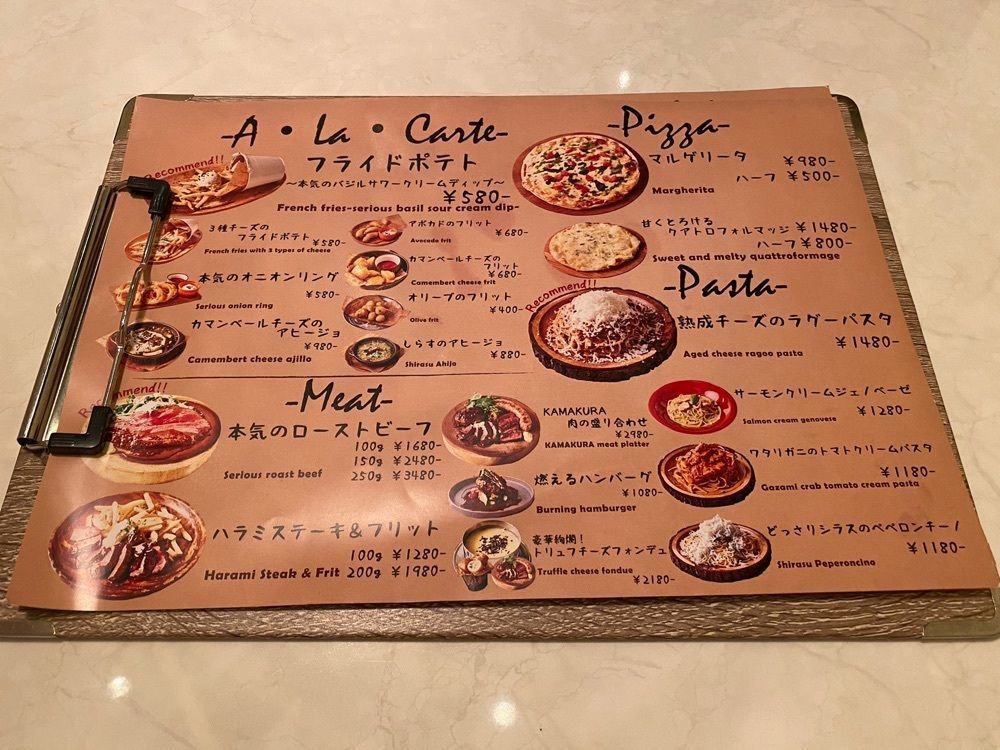 -A・La・Carte-
Recommend!!
フライドポテト
～本気のバジルサワークリームディップ～
¥580-
French fries-serious basil sour cream dip-
3種チーズの
フライドポテト ¥580-
French fries with 3 types of cheese
本気のオニオンリング
¥580-
Serious onion ring
カマンベールチーズの
アヒージョ
¥980-
Camembert cheese ajillo
アボカドのフリット
¥680-
Avocado frit
カマンベールチーズの
フリット
¥680-
Camembert cheese frit
オリーブのフリット
¥400-
Olive frit
しらすのアヒージョ
¥880-
Shirasu Ahijo
-Pizza-
マルゲリータ ¥980-
ハーフ ¥500-
Margherita
甘くとろける
クアトロフォルマッジ ¥1480-
ハーフ ¥800-
Sweet and melty quattroformage
-Pasta-
Recommend!!
熟成チーズのラグーパスタ
¥1480-
Aged cheese ragoo pasta
サーモンクリームジェノベーゼ
¥1280-
Salmon cream genovese
ワタリガニのトマトクリームパスタ
¥1180-
Gazami crab tomato cream pasta
どっさりシラスのペペロンチーノ
¥1180-
Shirasu Peperoncino
-Meat-
本気のローストビーフ
100g ¥1680-
150g ¥2480-
Serious roast beef 250g ¥3480-
ハラミステーキ&フリット
100g ¥1280-
Harami Steak & Frit 200g ¥1980-
KAMAKURA
肉の盛り合わせ
¥2980-
KAMAKURA meat platter
燃えるハンバーグ
¥1080-
Burning hamburger
豪華絢爛！
トリュフチーズフォンデュ
Truffle cheese fondue
¥2180-